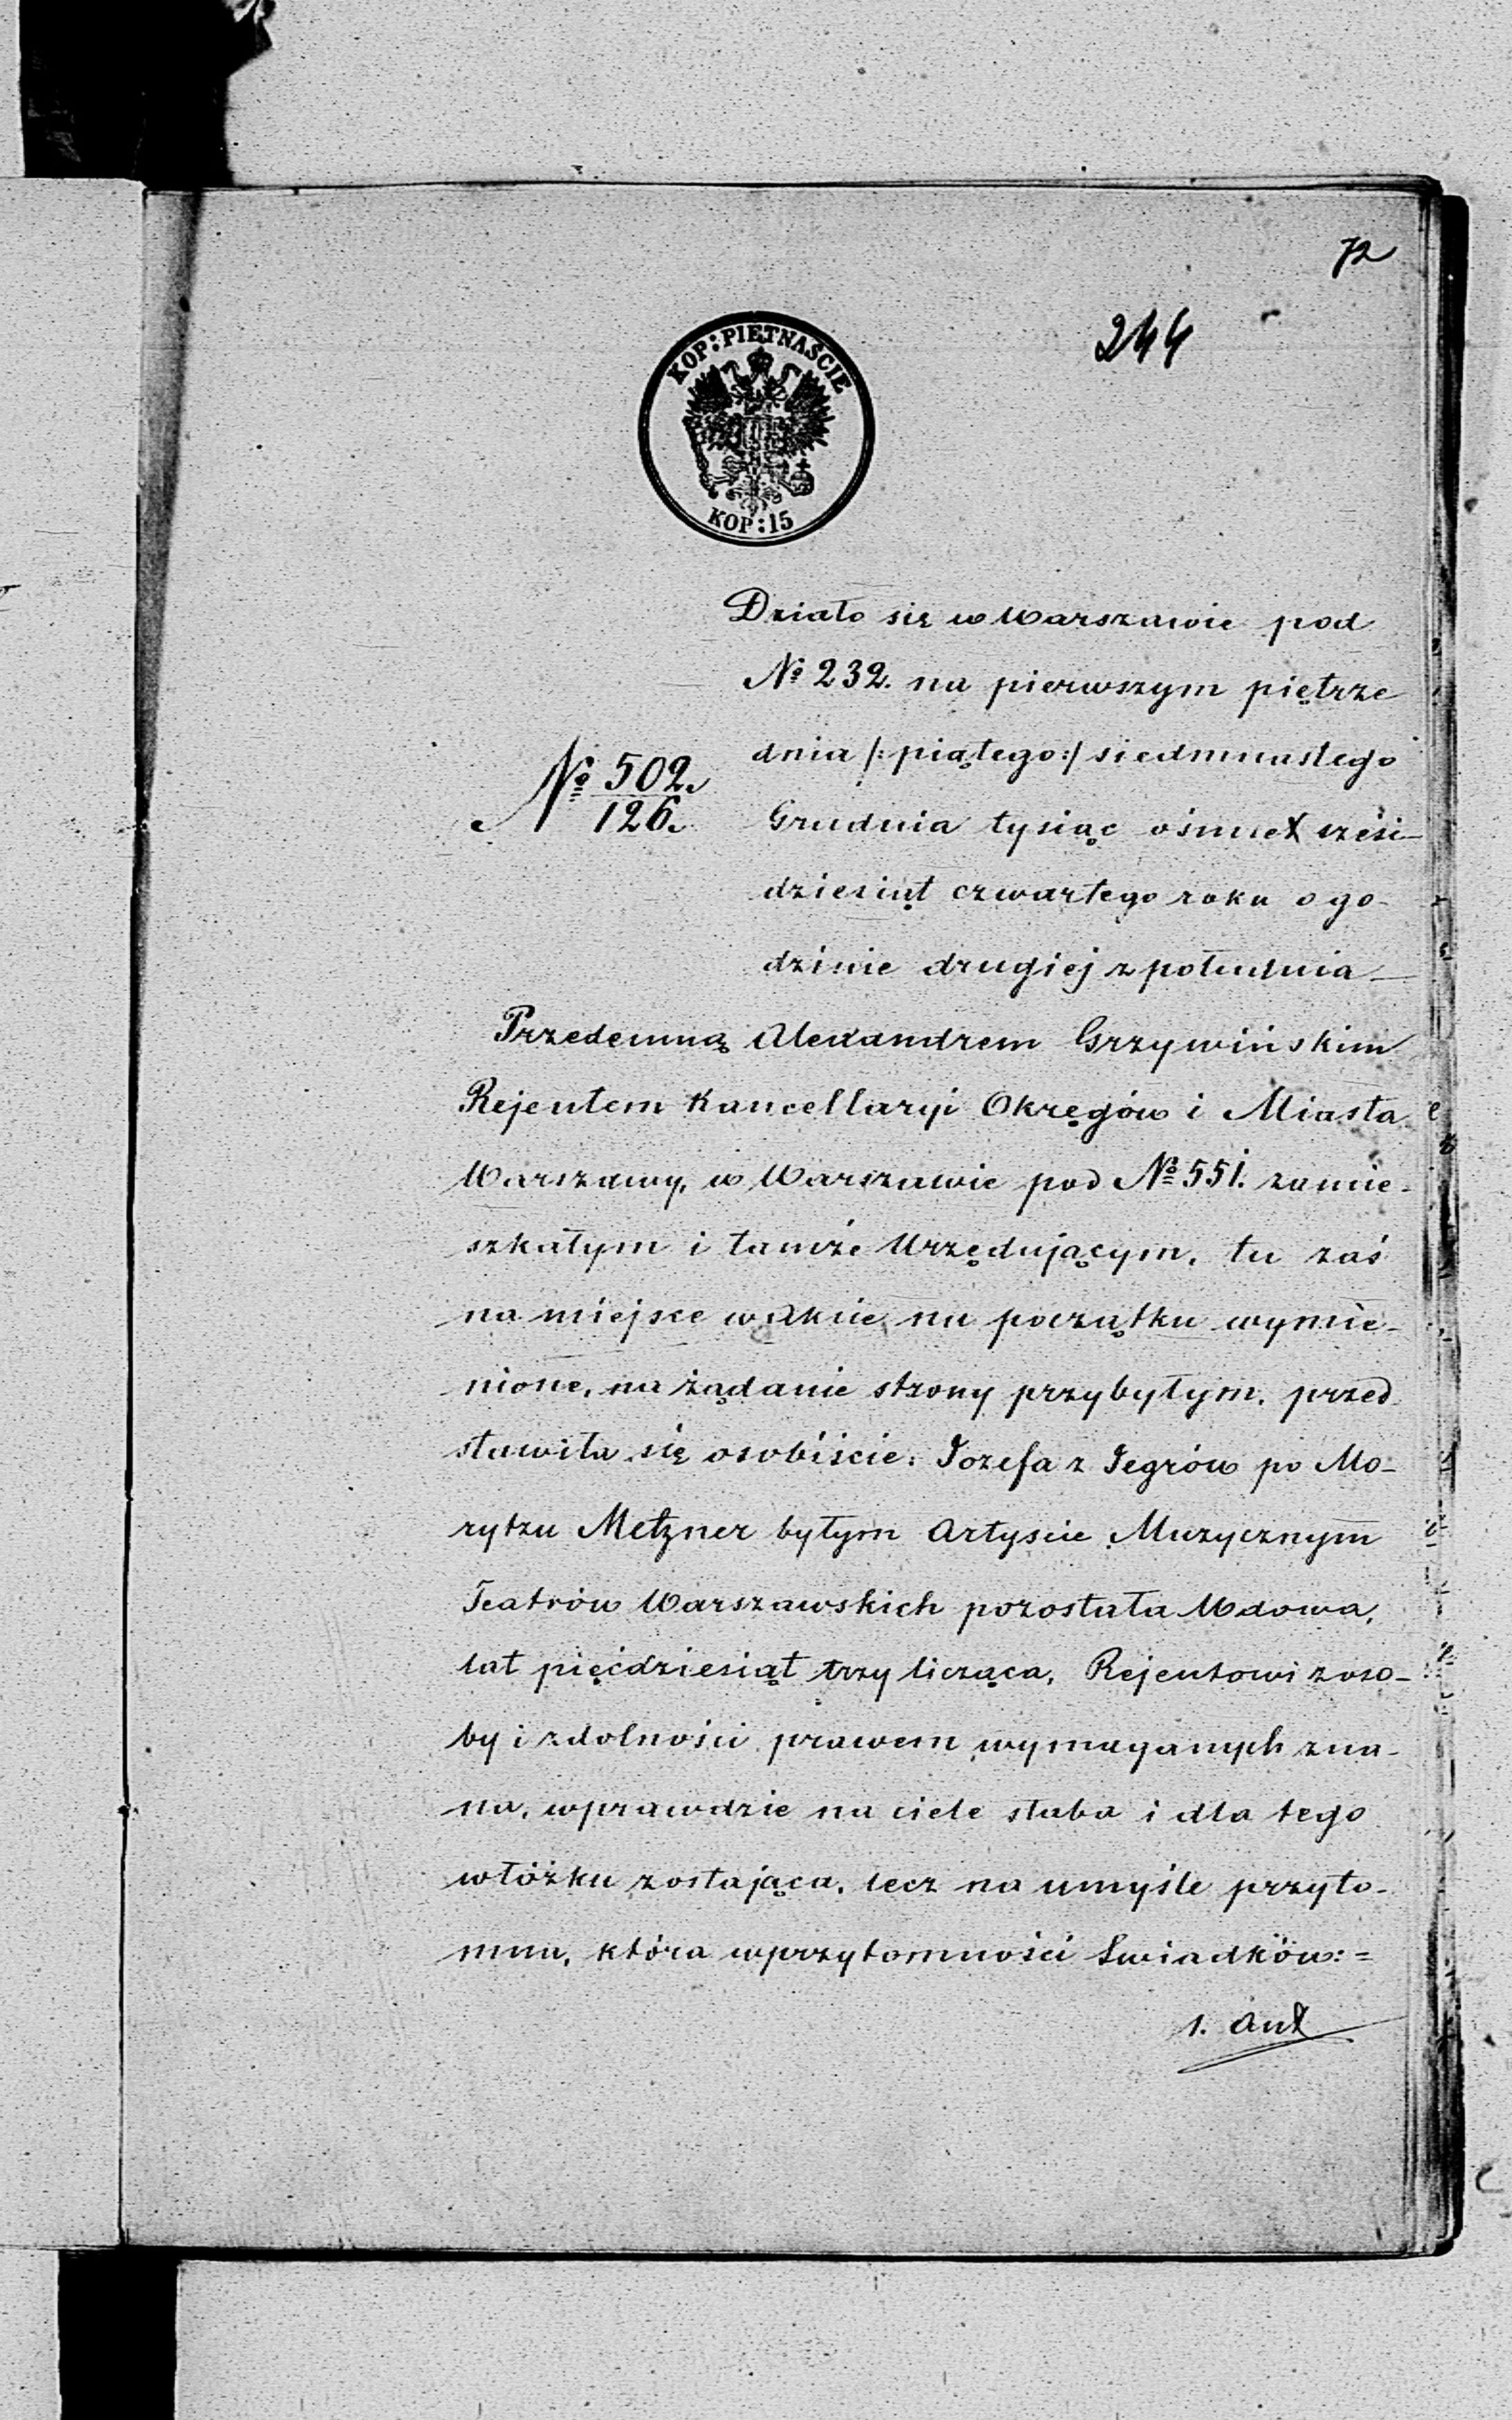 72
244
KOP: PIĘTNAŚCIE
KOP: 15
Działo się w Warszawie pod
№ 232. na pierwszym piętrze
dnia /:piątego:/ siedmnastego
№ 502.
126.
Grudnia tysiąc ośmset sześć-
dziesiąt czwartego roku o go-
dzinie drugiej z południa
Przedemną Alexandrem Grzywińskim
Rejentem Kancellaryi Okręgów i Miasta
Warszawy, w Warszawie pod № 551. zamie-
szkałym i tamże Urzędującym, tu zaś
na miejsce w Akcie na początku wymie-
nione, na żądanie strony przybyłym, przed
stawiła się osobiście: Jozefa z Jegrów po Mo-
rytzu Metzner byłym Artyscie Muzycznym
Teatrów Warszawskich pozostała Wdowa,
lat pięćdziesiąt trzy licząca, Rejentowi z oso-
by i zdolności prawem wymaganych zna-
na, wprawdzie na ciele słaba i dla tego
w łóżku zostająca, lecz na umyśle przyto-
mna, która w przytomności Swiadków:=
1. Ant